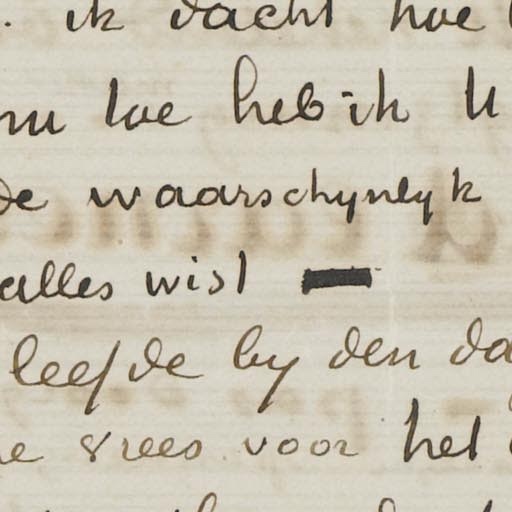 ik dacht hoe
nu toe heb ik U
de waarschynlyk
alles wist
leefde by den da
e vrees voor het